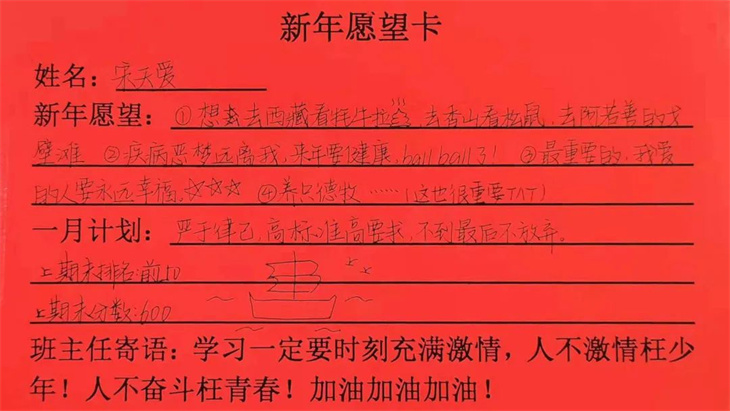 新年愿望卡
姓名：宋天爱
新年愿望：①想去西藏看牦牛拉，去香山看松鼠，去阿若善的戈
壁滩 ②疾病恶梦远离我，来年要健康，ball ball 3！ ③最重要的，我爱
的人要永远幸福，☆☆☆ ④养只德牧……（这也很重要TAT）
一月计划：严于律己，高标准高要求，不到最后不放弃。
上期末排名：前50
上期末分数：600
班主任寄语：学习一定要时刻充满激情，人不激情枉少
年！人不奋斗枉青春！加油加油加油！